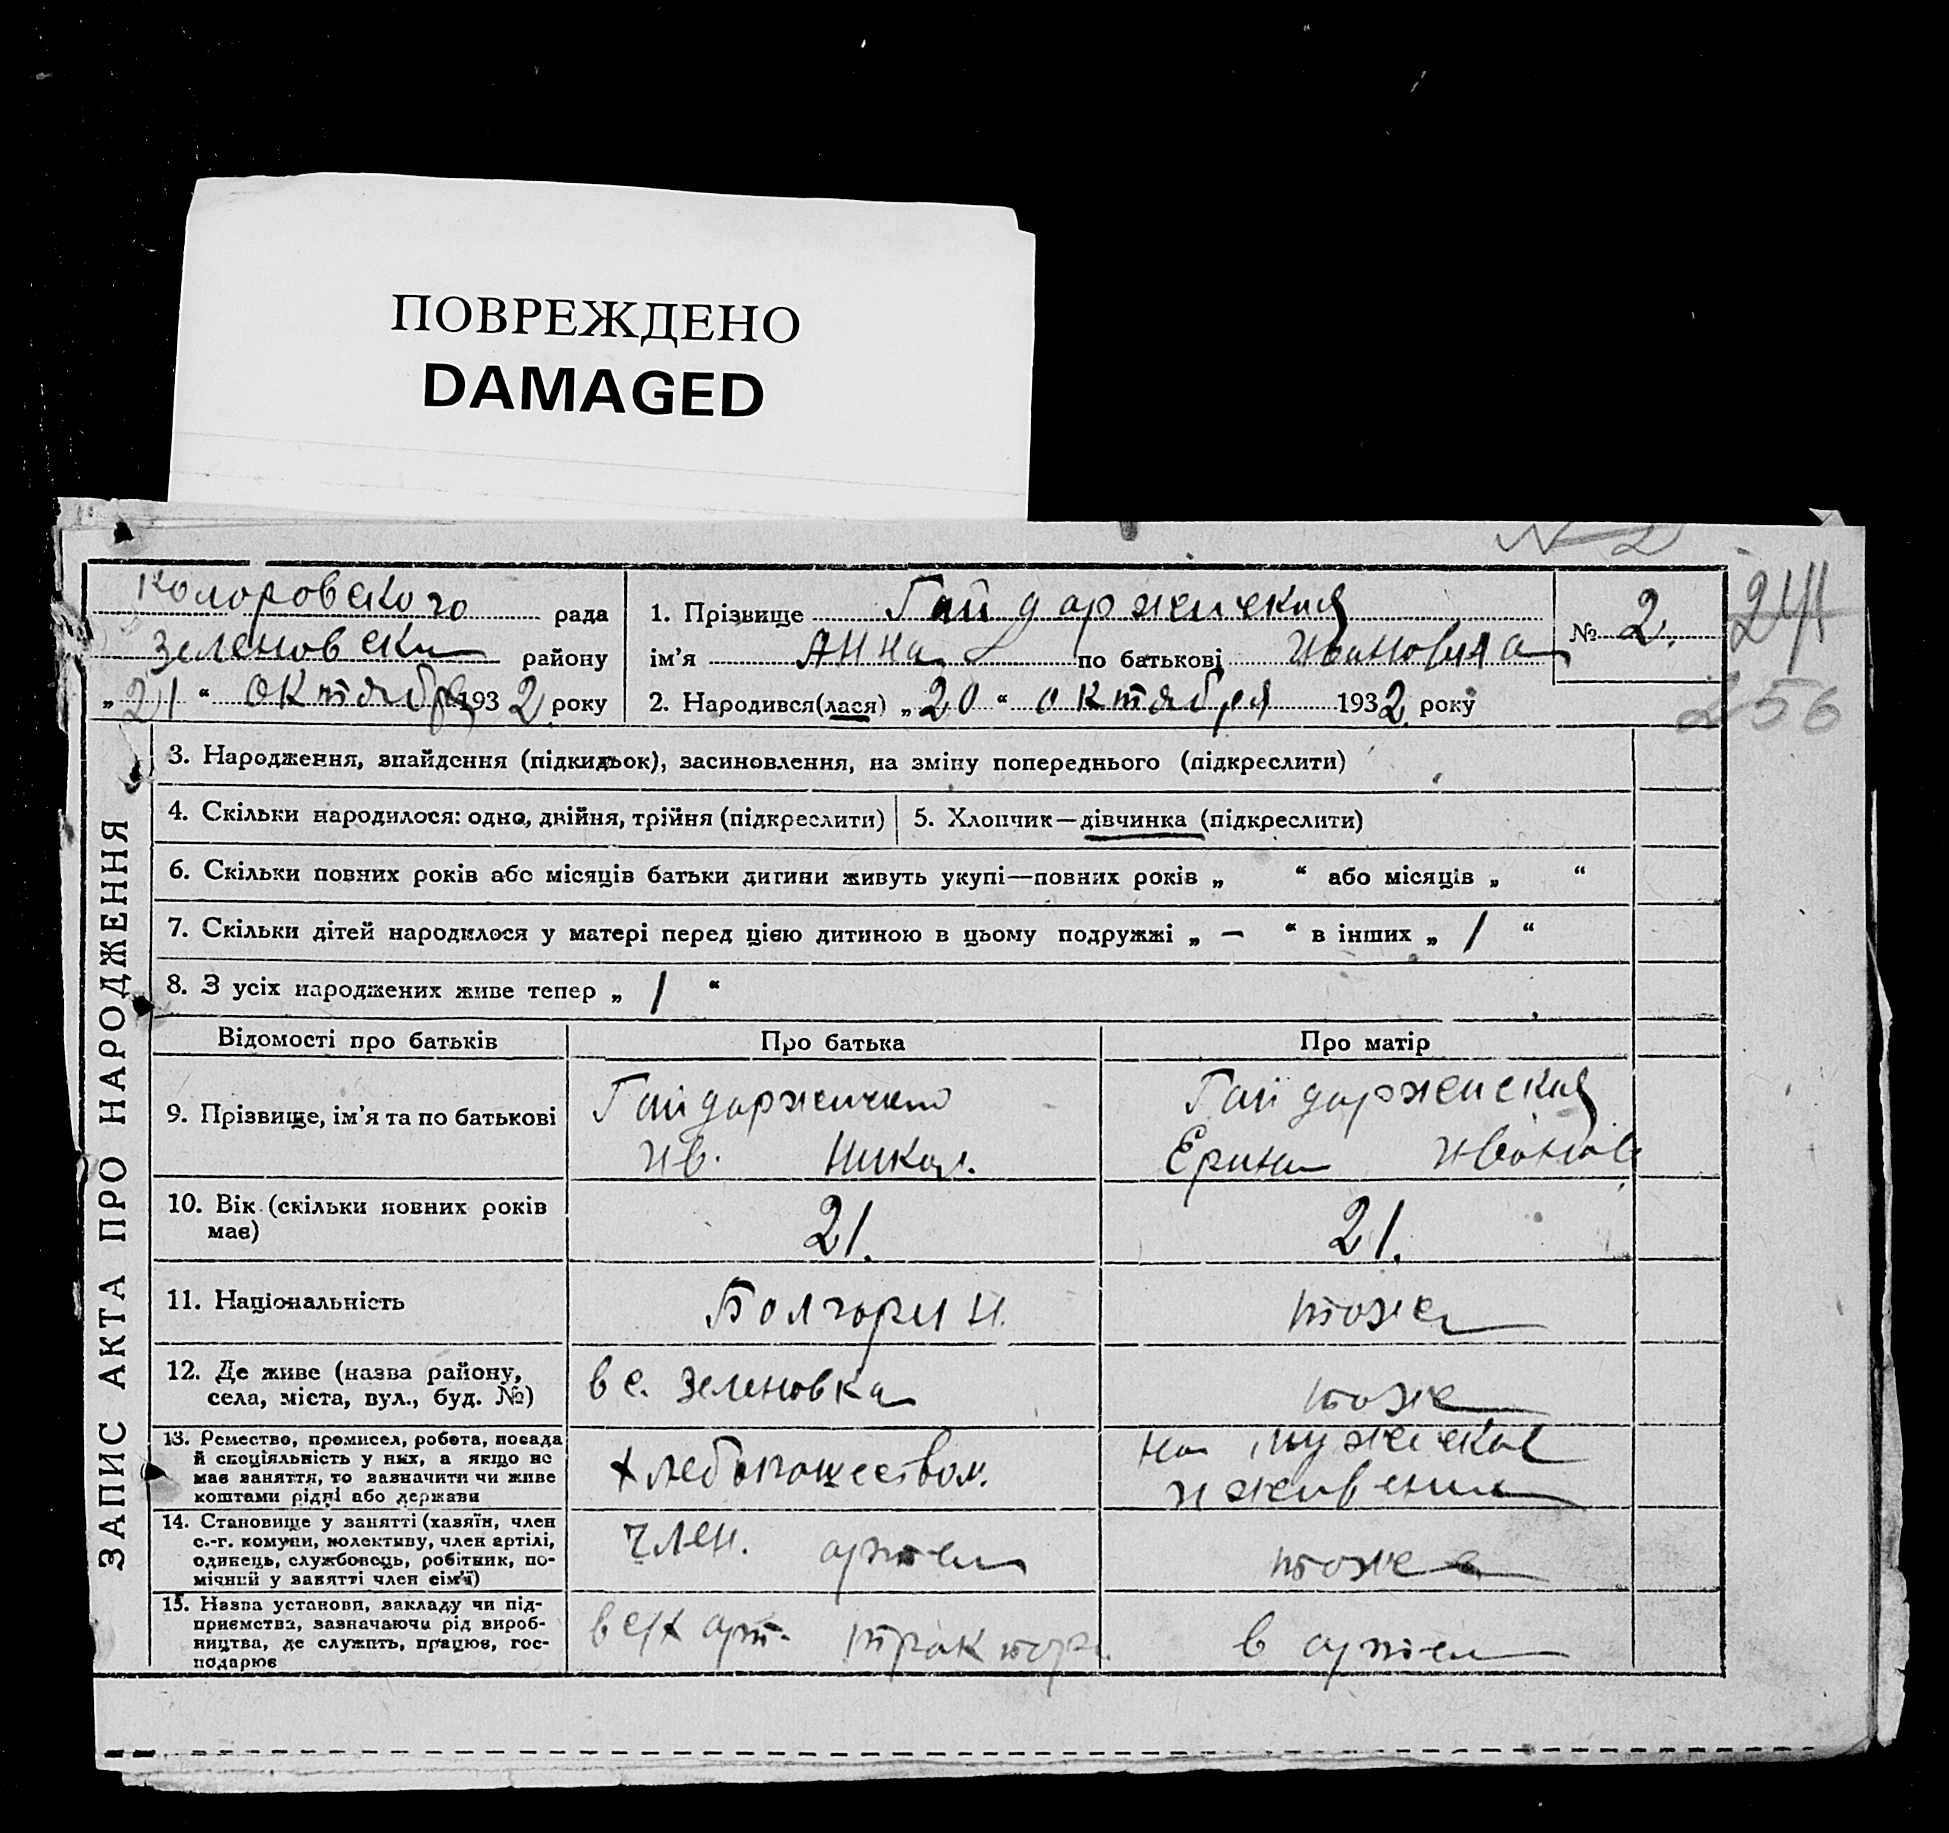 ПОВРЕЖДЕНО
DAMAGED
№ 2
Коларовского рада
Зеленовски району
„21“ октября 1932 року
1. Прізвище Гайдаржийская
ім’я Анна по батькові Ивановна
2. Народився(лася) „20“ октября 1932 року
№ 2.
241
256
ЗАПИС АКТА ПРО НАРОДЖЕННЯ
3. Народження, знайдення (підкидьок), засиновлення, на зміну попереднього (підкреслити)
4. Скільки народилося: одно, двійня, трійня (підкреслити) 5. Хлопчик—дівчинка (підкреслити)
6. Скільки повних років або місяців батьки дитини живуть укупі—повних років „ “ або місяців „ “
7. Скільки дітей народилося у матері перед цією дитиною в цьому подружжі „ — “ в інших „ / “
8. З усіх народжених живе тепер „ / “
Відомості про батьків Про батька Про матір
9. Прізвище, ім’я та по батькові
Гайдаржийский
Ив. Никол.
Гайдаржийская
Ерина Иванов
10. Вік (скільки повних років
має)
21.
21.
11. Національність Болгарин. тоже
12. Де живе (назва району,
села, міста, вул., буд. №)
в с. Зеленовка
тоже
13. Ремество, промисел, робота, посада
й спеціяльність у них, а якщо не
має заняття, то зазначити чи живе
коштами рідні або держави
хлебопашеством.
на
14. Становище у занятті (хазяїн, член
с.-г. комуни, колективу, член артілі,
одинець, службовець, робітник, по-
мічний у занятті член сім’ї)
член. артели
тоже
15. Назва установи, закладу чи під-
приємства, зазначаючи рід вироб-
ництва, де служить, працює, гос-
подарює
в с/х арт. трактор.
в артели